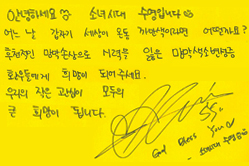 안녕하세요 소녀시대 수영입니다
어느 날 갑자기 세상이 온통 까만색이라면 어떻겠어요?
후천적인 망막손상으로 시력을 잃은 망막색소변성증
환우들에게 희망이 되어 주세요.
우리의 작은 관심이 모두의
큰 희망이 됩니다.
God Bless You
소녀시대 수영